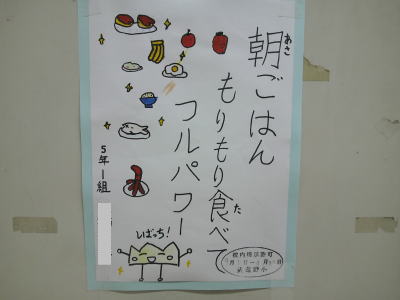 朝ごはん
あさ
もりもり食べて
た
フルパワー
5年1組
いばっち!
校内掲示許可